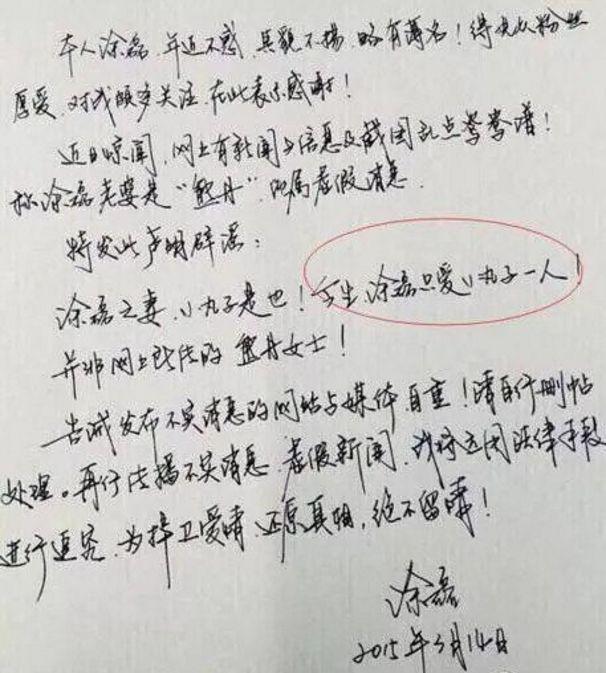 本人涂磊，年近不惑，其貌不扬，略有薄名！得大众粉丝
厚爱，对我颇多关注，在此表示感谢！
近日惊闻，网上有新闻与信息及截图乱点鸳鸯谱！
称涂磊老婆是“熊丹”，此属虚假消息。
特发此声明辟谣：
涂磊之妻，小丸子是也！今生，涂磊只爱小丸子一人！
并非网上所传的熊丹女士！
告诫发布不实消息的网站与媒体自重！请自行删帖
处理。再行传播不实消息，虚假新闻，我将运用法律手段
进行追究，为捍卫爱情，还原真相，绝不留情！
涂磊
2015年3月14日